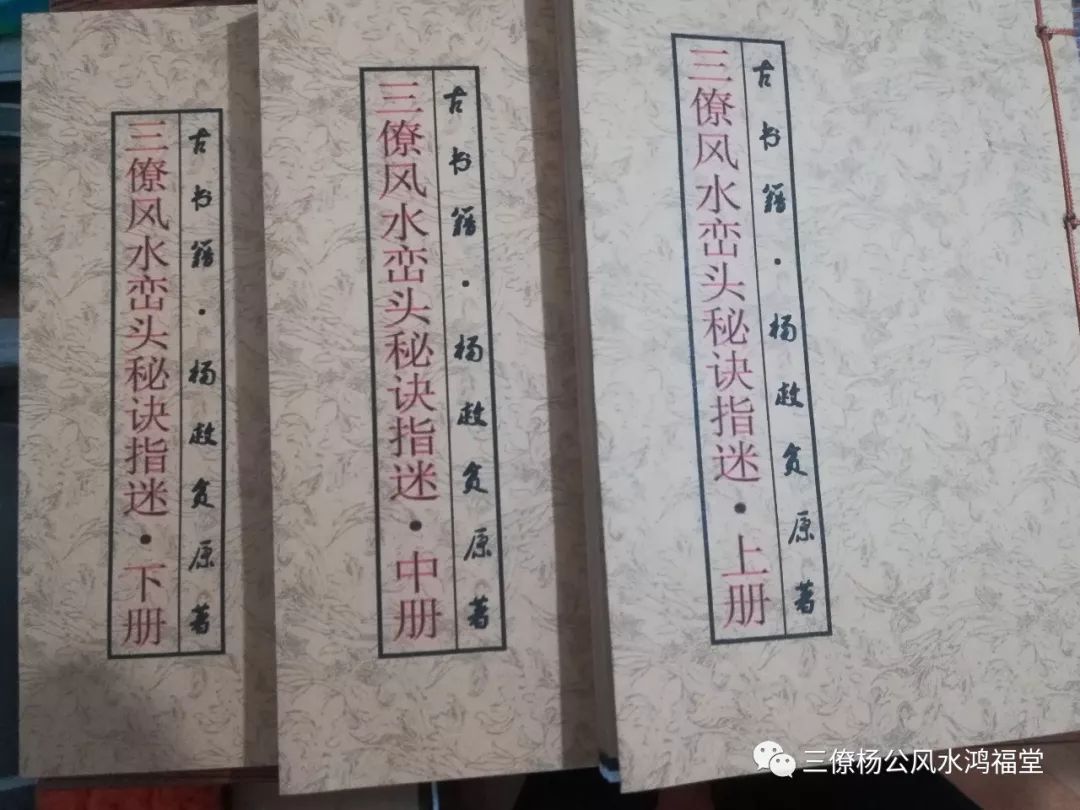 古书籍·杨救贫原著
三僚风水峦头秘诀指迷·上册
古书籍·杨救贫原著
三僚风水峦头秘诀指迷·中册
古书籍·杨救贫原著
三僚风水峦头秘诀指迷·下册
三僚杨公风水鸿福堂